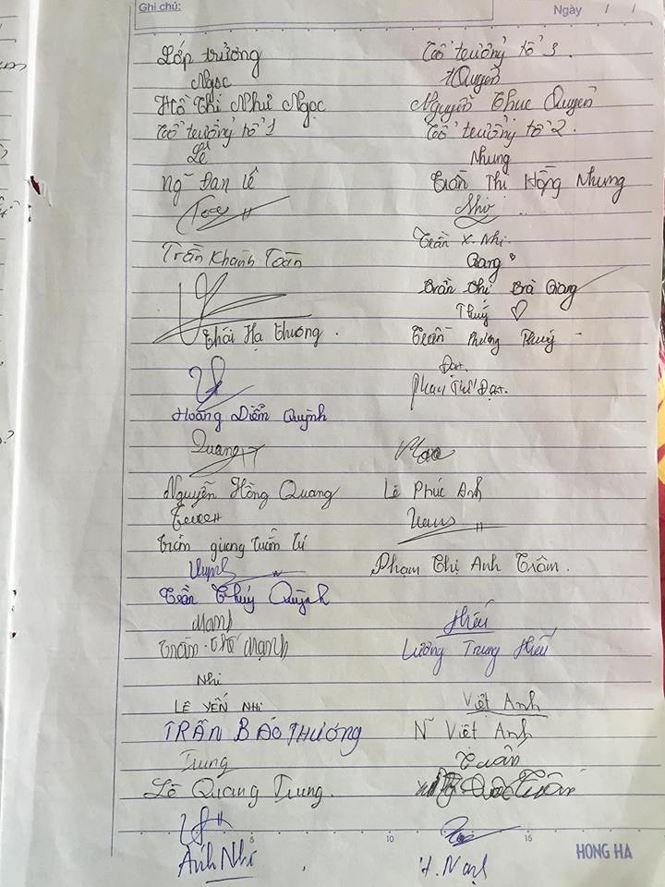 Ghi chú:
Ngày / /
Lớp trưởng
Ngọc
Hồ Thị Như Ngọc
Tổ trưởng tổ 1
Lê
Ng~ Đan Lê
Trần Khánh Toàn
Thái Hạ Thương.
Hoàng Diễm Quỳnh
Quang
Nguyễn Hồng Quang
Trần giang Tuấn Tú
Trần Thúy Quỳnh
Mạnh
Trần Thế Mạnh
Nhi
LÊ YẾN NHI
TRẦN BẢO THƯƠNG
Trung
Lê Quang Trung.
Ánh Nhi
Tổ trưởng tổ 3.
Quyên
Nguyễn Thục Quyên
Tổ trưởng tổ 2.
Nhung
Trần Thị Hồng Nhung
Nhi
Trần X. Nhi.
Giang
Trần Thị Trà Giang
Thuý ♡
Trần Phương Thuý
Đạt.
Phan Đạt.
Lê Phúc Anh
Phạm Thị Anh Trâm.
Hiếu
Lương Trung Hiếu
Việt Anh
N~ Việt Anh
Tuấn
Tuấn
5 10 15
HONG HA